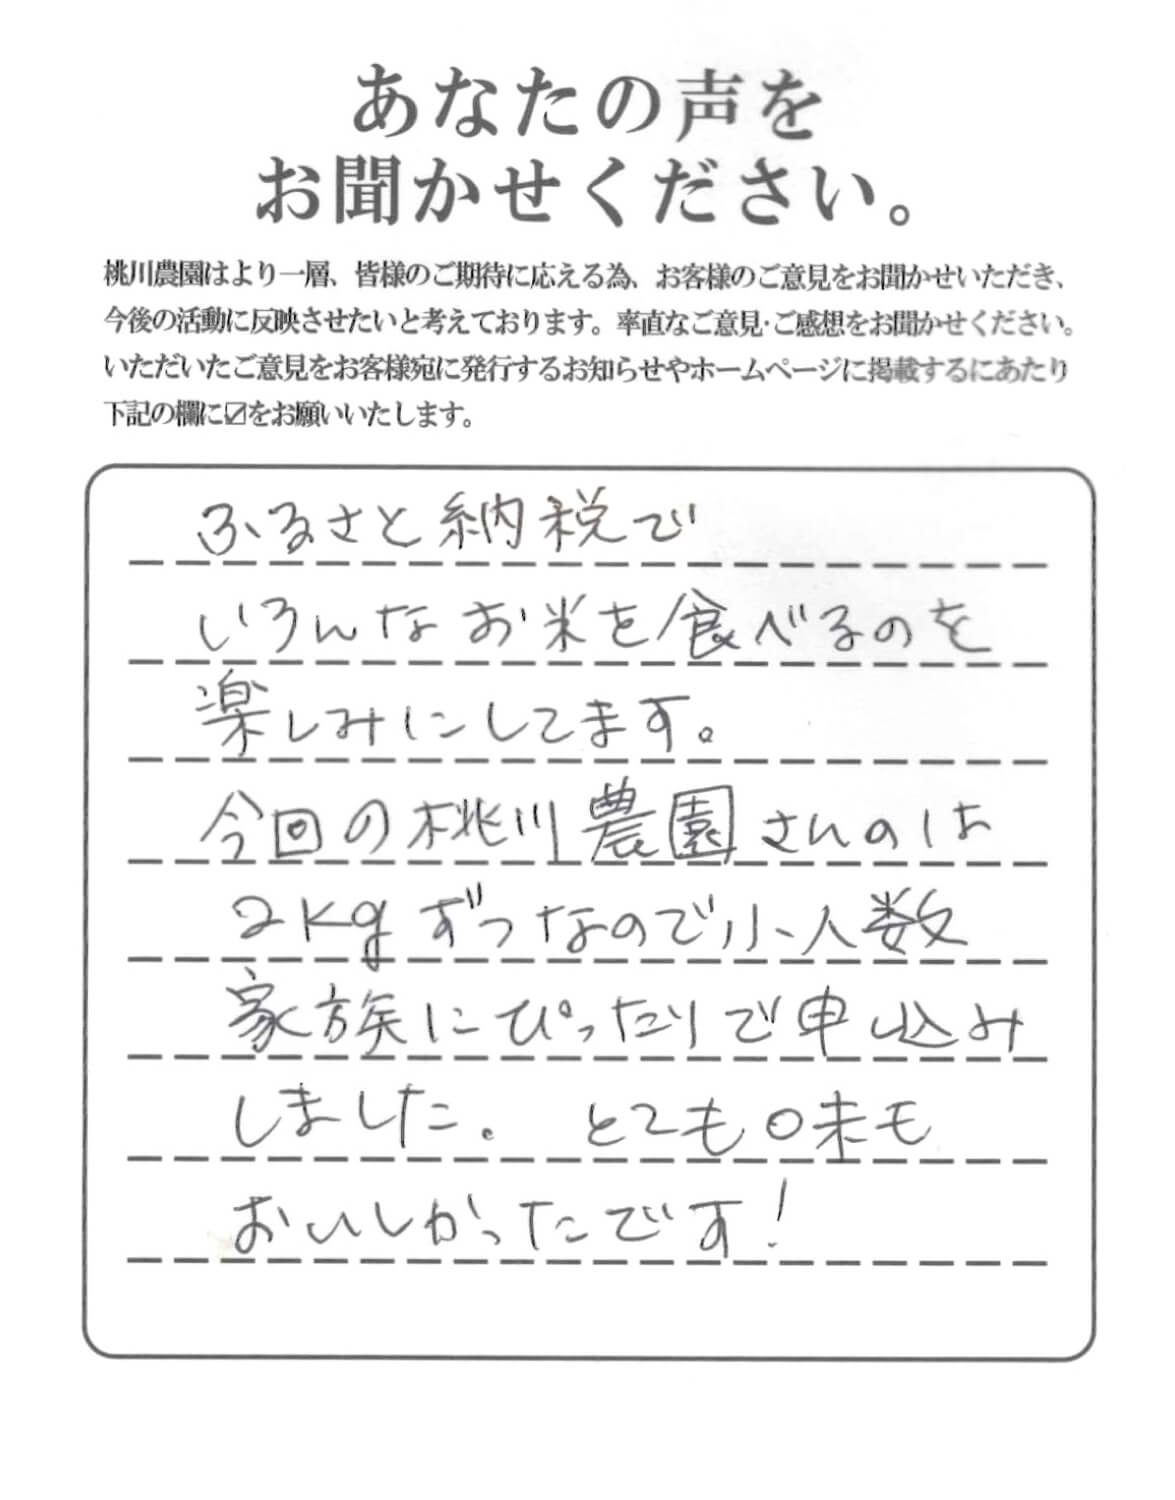 あなたの声を
お聞かせください。
桃川農園はより一層、皆様のご期待に応える為、お客様のご意見をお聞かせいただき、
今後の活動に反映させたいと考えております。率直なご意見・ご感想をお聞かせください。
いただいたご意見をお客様宛に発行するお知らせやホームページに掲載するにあたり
下記の欄に☑をお願いいたします。
ふるさと納税で
いろんなお米を食べるのを
楽しみにしてます。
今回の桃川農園さんのは
2kgずつなので小人数
家族にぴったりで申込み
しました。 とても味も
おいしかったです!